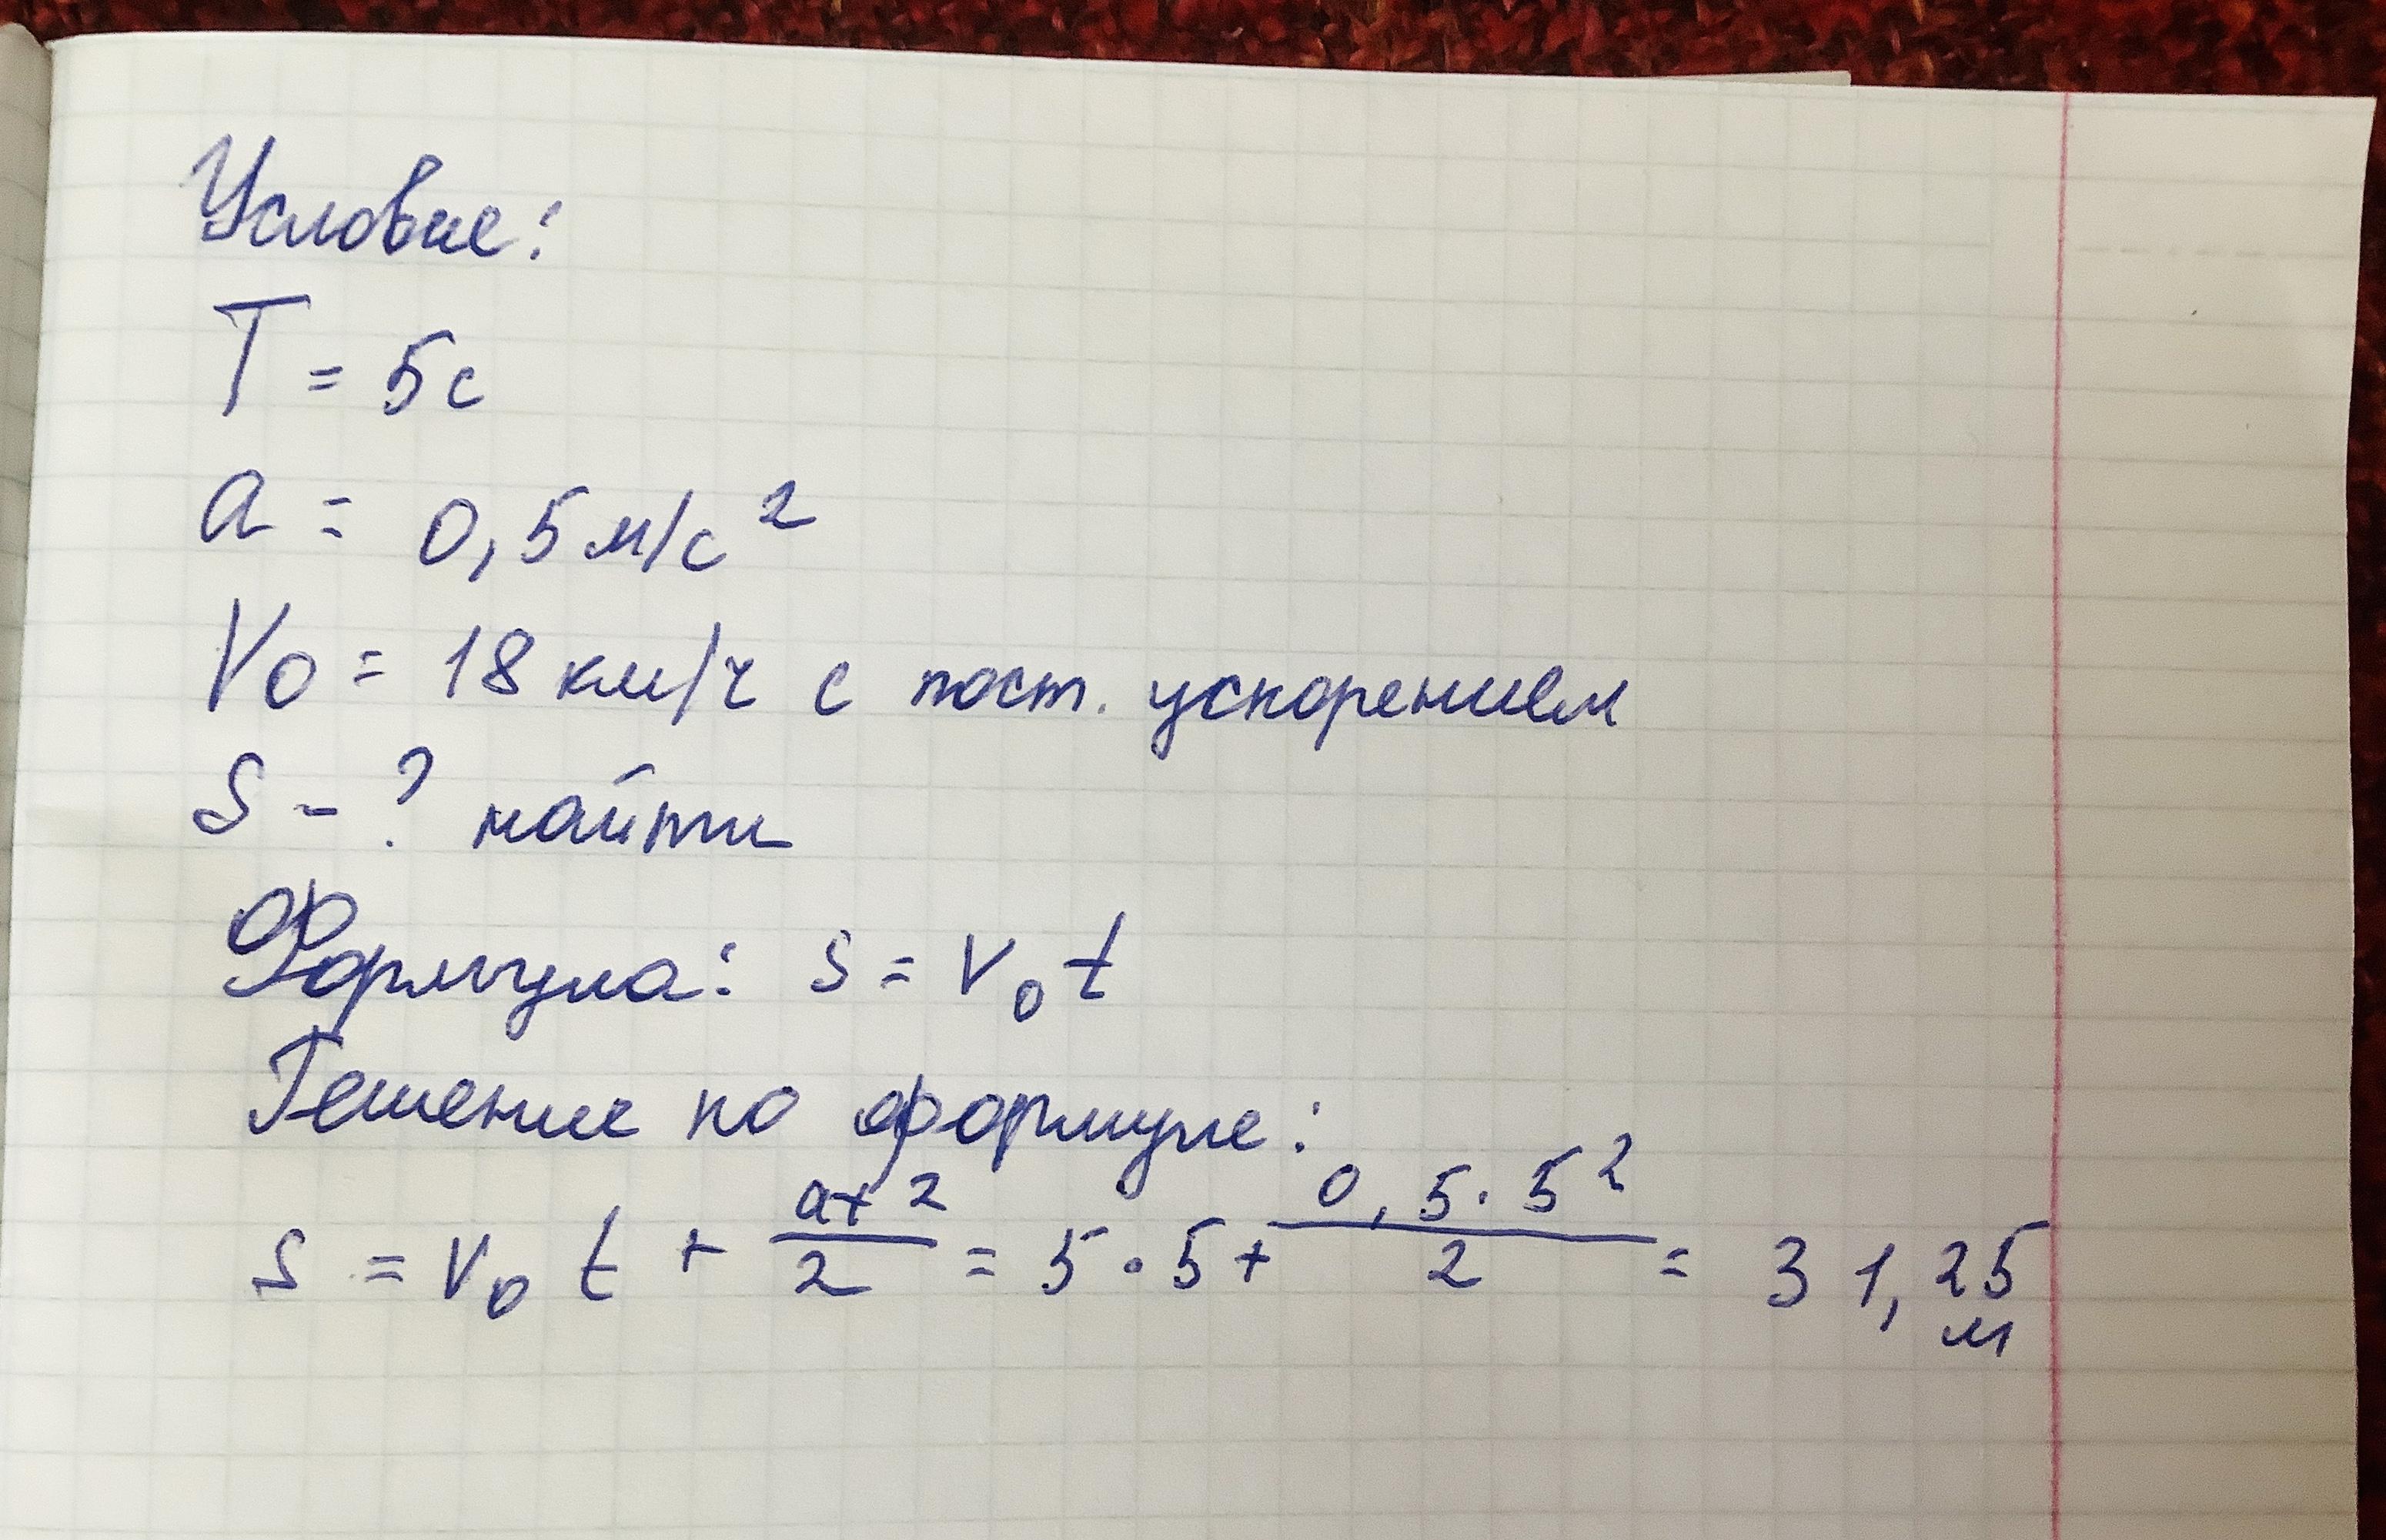 Условие:
T = 5с
a = 0,5 м/с²
V₀ = 18 км/ч с пост. ускорением
S - ? найти
Формула: s = v₀ t
Решение по формуле:
s = v₀ t + at²/2 = 5 · 5 + 0,5 · 5²/2 = 31,25 м